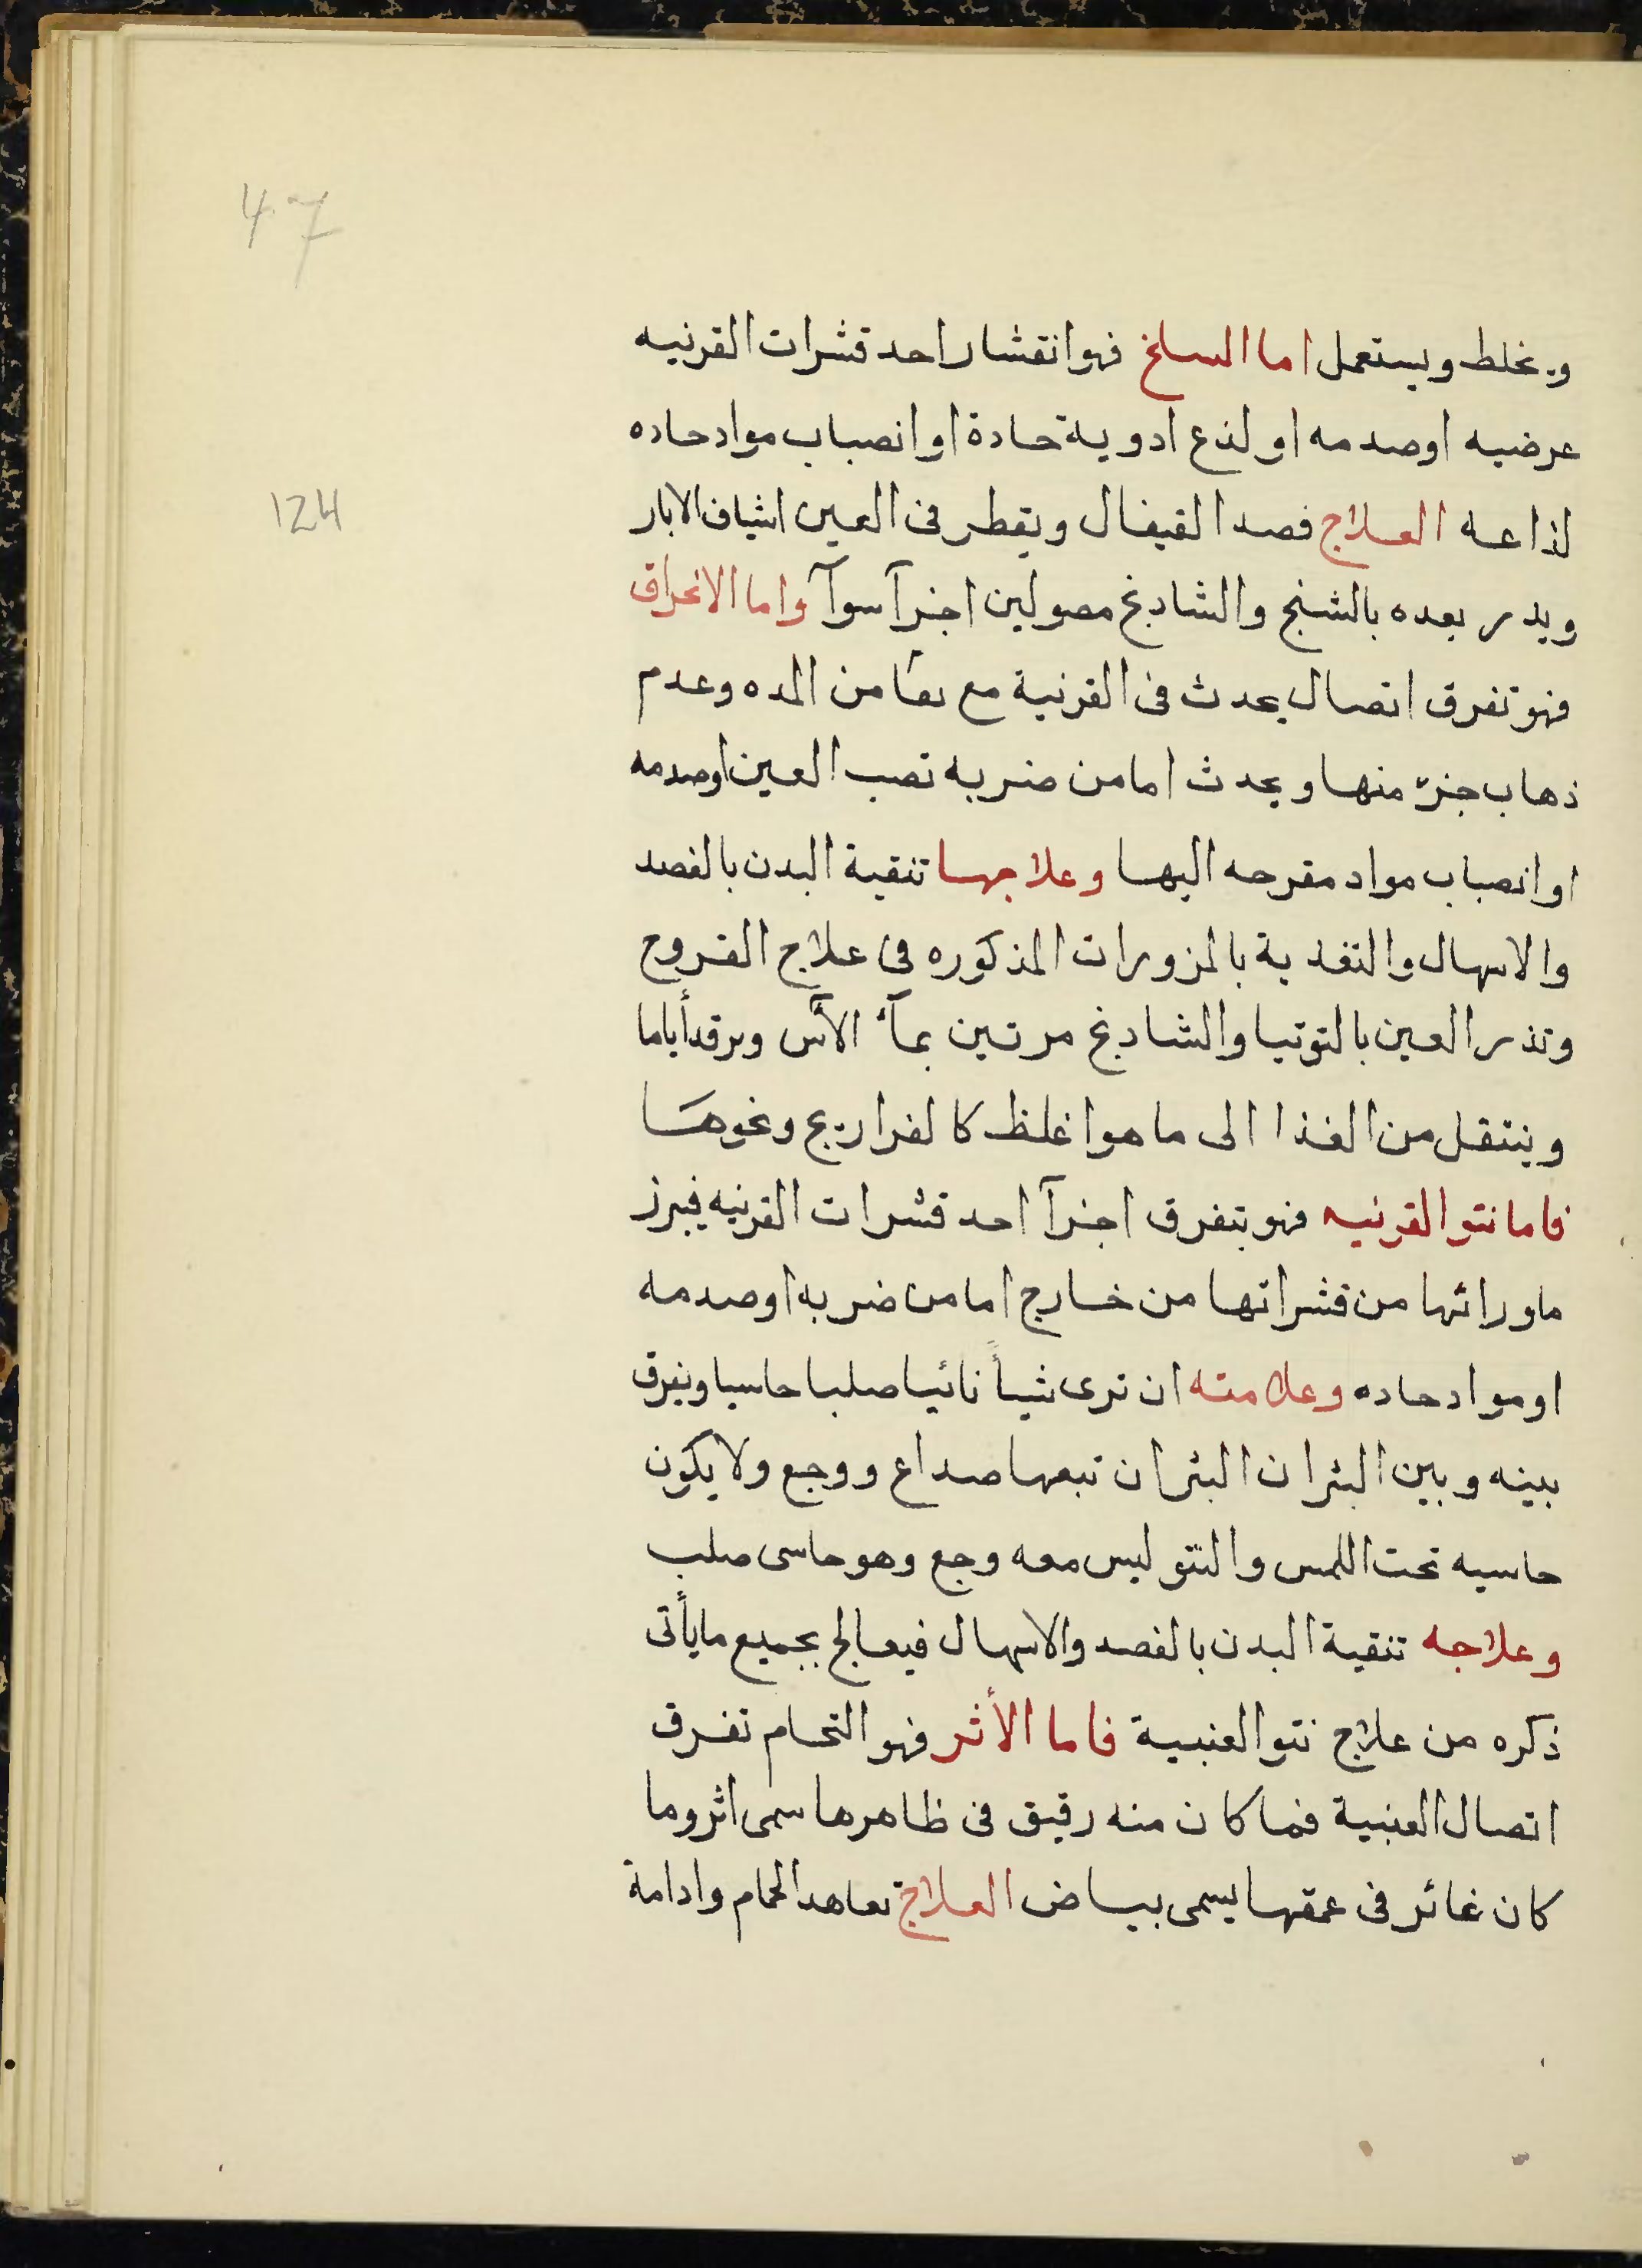 47
ويخلط ويستعمل اما السلخ فهو انقشار احد قشرات القرنيه
عرضيه اوصدمه او لذع ادوية حادة او انصباب مواد حاده
124
لذاعه العلاج فصد القيفال ويقطر فى العين اشياف الابار
ويذر بعده بالشنج والشادنج مصولين اجزآ سوآ واما الانخراق
فهو تفرق اتصال يحدث فى القرنية مع بقا من المده وعدم
ذهاب جزء منها ويحدث اما من ضربه تصب العين اوصدمه
او انصباب مواد مقرحه اليها وعلاجها تنقية البدن بالفصد
والاسهال والتغذية بالمزورات المذكوره في علاج القروح
وتذر العين بالتوتيا والشادنج مرتين بمآء الآس ويرقد أياما
وينتقل من الغذا الى ما هو اغلظ كالفراريج ونحوها
فاما نتو القرنيه فهو بتفرق اجزآ احد قشرات القرنيه فيبرز
ماورائها من قشراتها من خارج اما من ضربه اوصدمه
او مواد حاده وعلامته ان ترى شيأ نائيا صلبا حاسيا ويفرق
بينه وبين البثران البثران تبعها صداع ووجع ولا يكون
حاسيه تحت اللمس والنتو ليس معه وجع وهو حاسى صلب
وعلاجه تنقية البدن بالفصد والاسهال فيعالج بجميع مايأتى
ذكره من علاج نتو العنبية فاما الأثر فهو التحام تفرق
اتصال العنبية فما كان منه رقيق فى ظاهرها سمى اثر وما
كان غائر فى عمقها يسمى بياض العلاج تعاهد الحمام وادامة